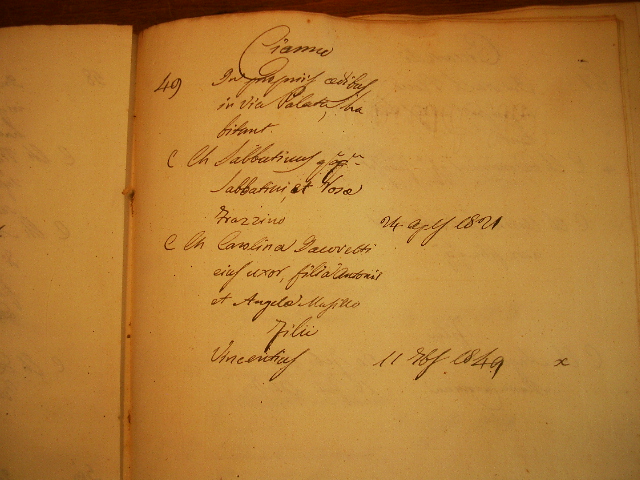 Cianno
49 In propriis ædibus
in via Palata, ha
bitant.
C Ch Sabbatinus
Sabbatini, et Rosæ
Frazzino 24 aplis 1821
C Ch Carolina
ejus uxor, filia Antonii
et Angelæ Musillo
Filii
Vincentius 11 1849 x